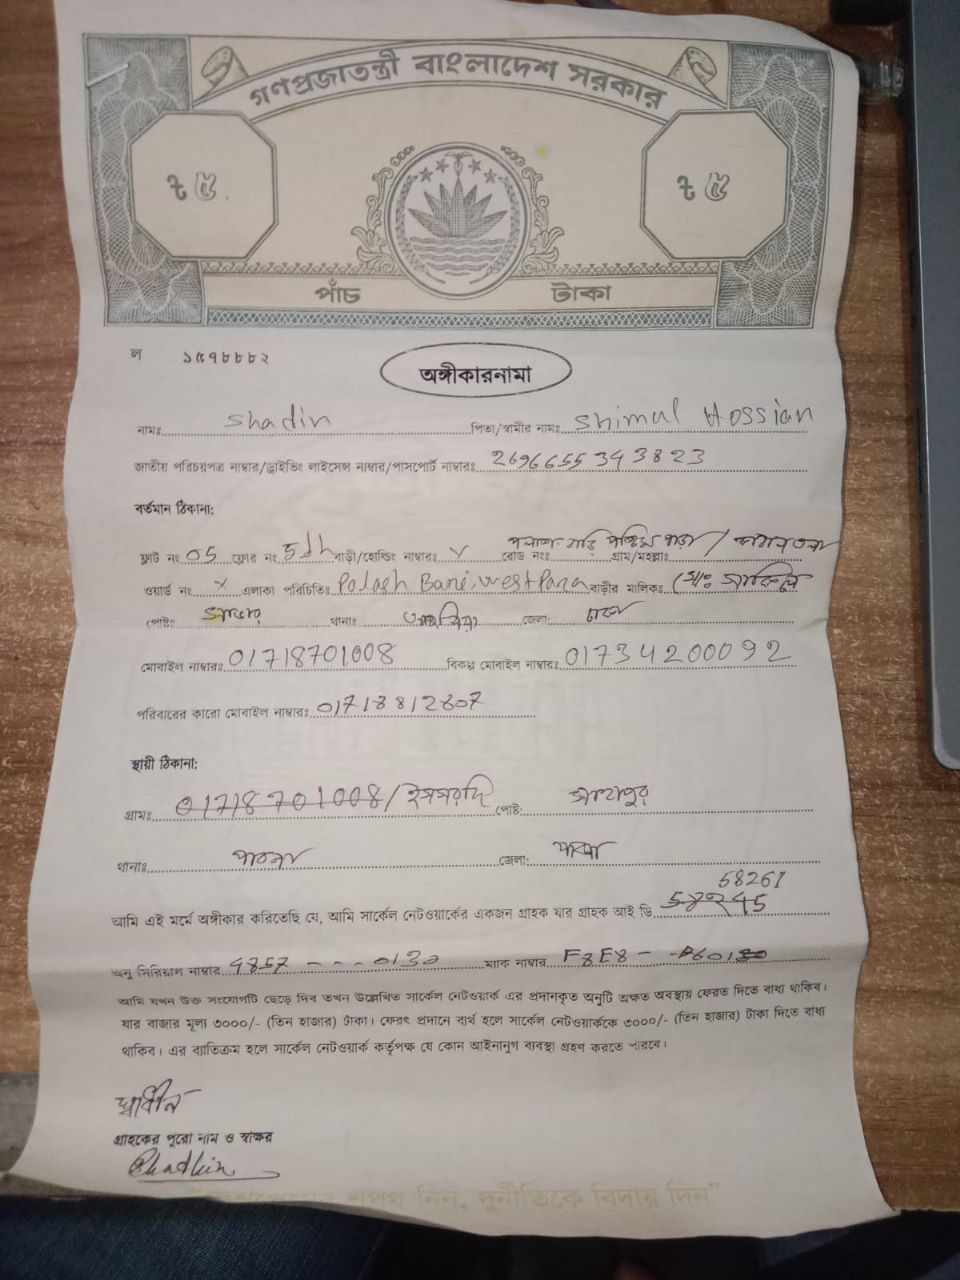 গণপ্রজাতন্ত্রী বাংলাদেশ সরকার
৳ ৫ ৳ ৫
পাঁচ টাকা
ল ১৫৭৮৮৮২
অঙ্গীকারনামা
নামঃ Shadin পিতা/স্বামীর নামঃ Shimul Hossian
জাতীয় পরিচয়পত্র নাম্বার/ড্রাইভিং লাইসেন্স নাম্বার/পাসপোর্ট নাম্বারঃ 2696655343823
বর্তমান ঠিকানা:
ফ্লাট নং 05 ফ্লোর নং 5th বাড়ী/হোল্ডিং নাম্বারঃ রোড নংঃ পলাশ বাড়ি পশ্চিম পাড়া / গ্রাম/মহল্লাঃ
ওয়ার্ড নং x এলাকা পরিচিতিঃ Palash Bari, west Para বাড়ীর মালিকঃ মোঃ
পোষ্ট: সাভার থানাঃ আশুলিয়া জেলা: ঢাকা
মোবাইল নাম্বারঃ 01718701008 বিকল্প মোবাইল নাম্বারঃ 01734200092
পরিবারের কারো মোবাইল নাম্বারঃ 01718812607
স্থায়ী ঠিকানা:
গ্রামঃ 01718701008 / ইসসরদি পোষ্ট: সাহাপুর
থানাঃ পাবনা জেলা: পাবনা
58261
আমি এই মর্মে অঙ্গীকার করিতেছি যে, আমি সার্কেল নেটওয়ার্কের একজন গ্রাহক যার গ্রাহক আই ডি 58245
অনু সিরিয়াল নাম্বার 9857 - - - 0130 ম্যাক নাম্বার F8E8 -
আমি যখন উক্ত সংযোগটি ছেড়ে দিব তখন উল্লেখিত সার্কেল নেটওয়ার্ক এর প্রদানকৃত অনুটি অক্ষত অবস্থায় ফেরত দিতে বাধ্য থাকিব।
যার বাজার মূল্য ৩০০০/- (তিন হাজার) টাকা। ফেরৎ প্রদানে ব্যর্থ হলে সার্কেল নেটওয়ার্ককে ৩০০০/- (তিন হাজার) টাকা দিতে বাধ্য
থাকিব। এর ব্যাতিক্রম হলে সার্কেল নেটওয়ার্ক কর্তৃপক্ষ যে কোন আইনানুগ ব্যবস্থা গ্রহণ করতে পারবে।
স্বাধীন
গ্রাহকের পুরো নাম ও স্বাক্ষর
Shadhin
শপথ নিন, দুর্নীতিকে বিদায় দিন"